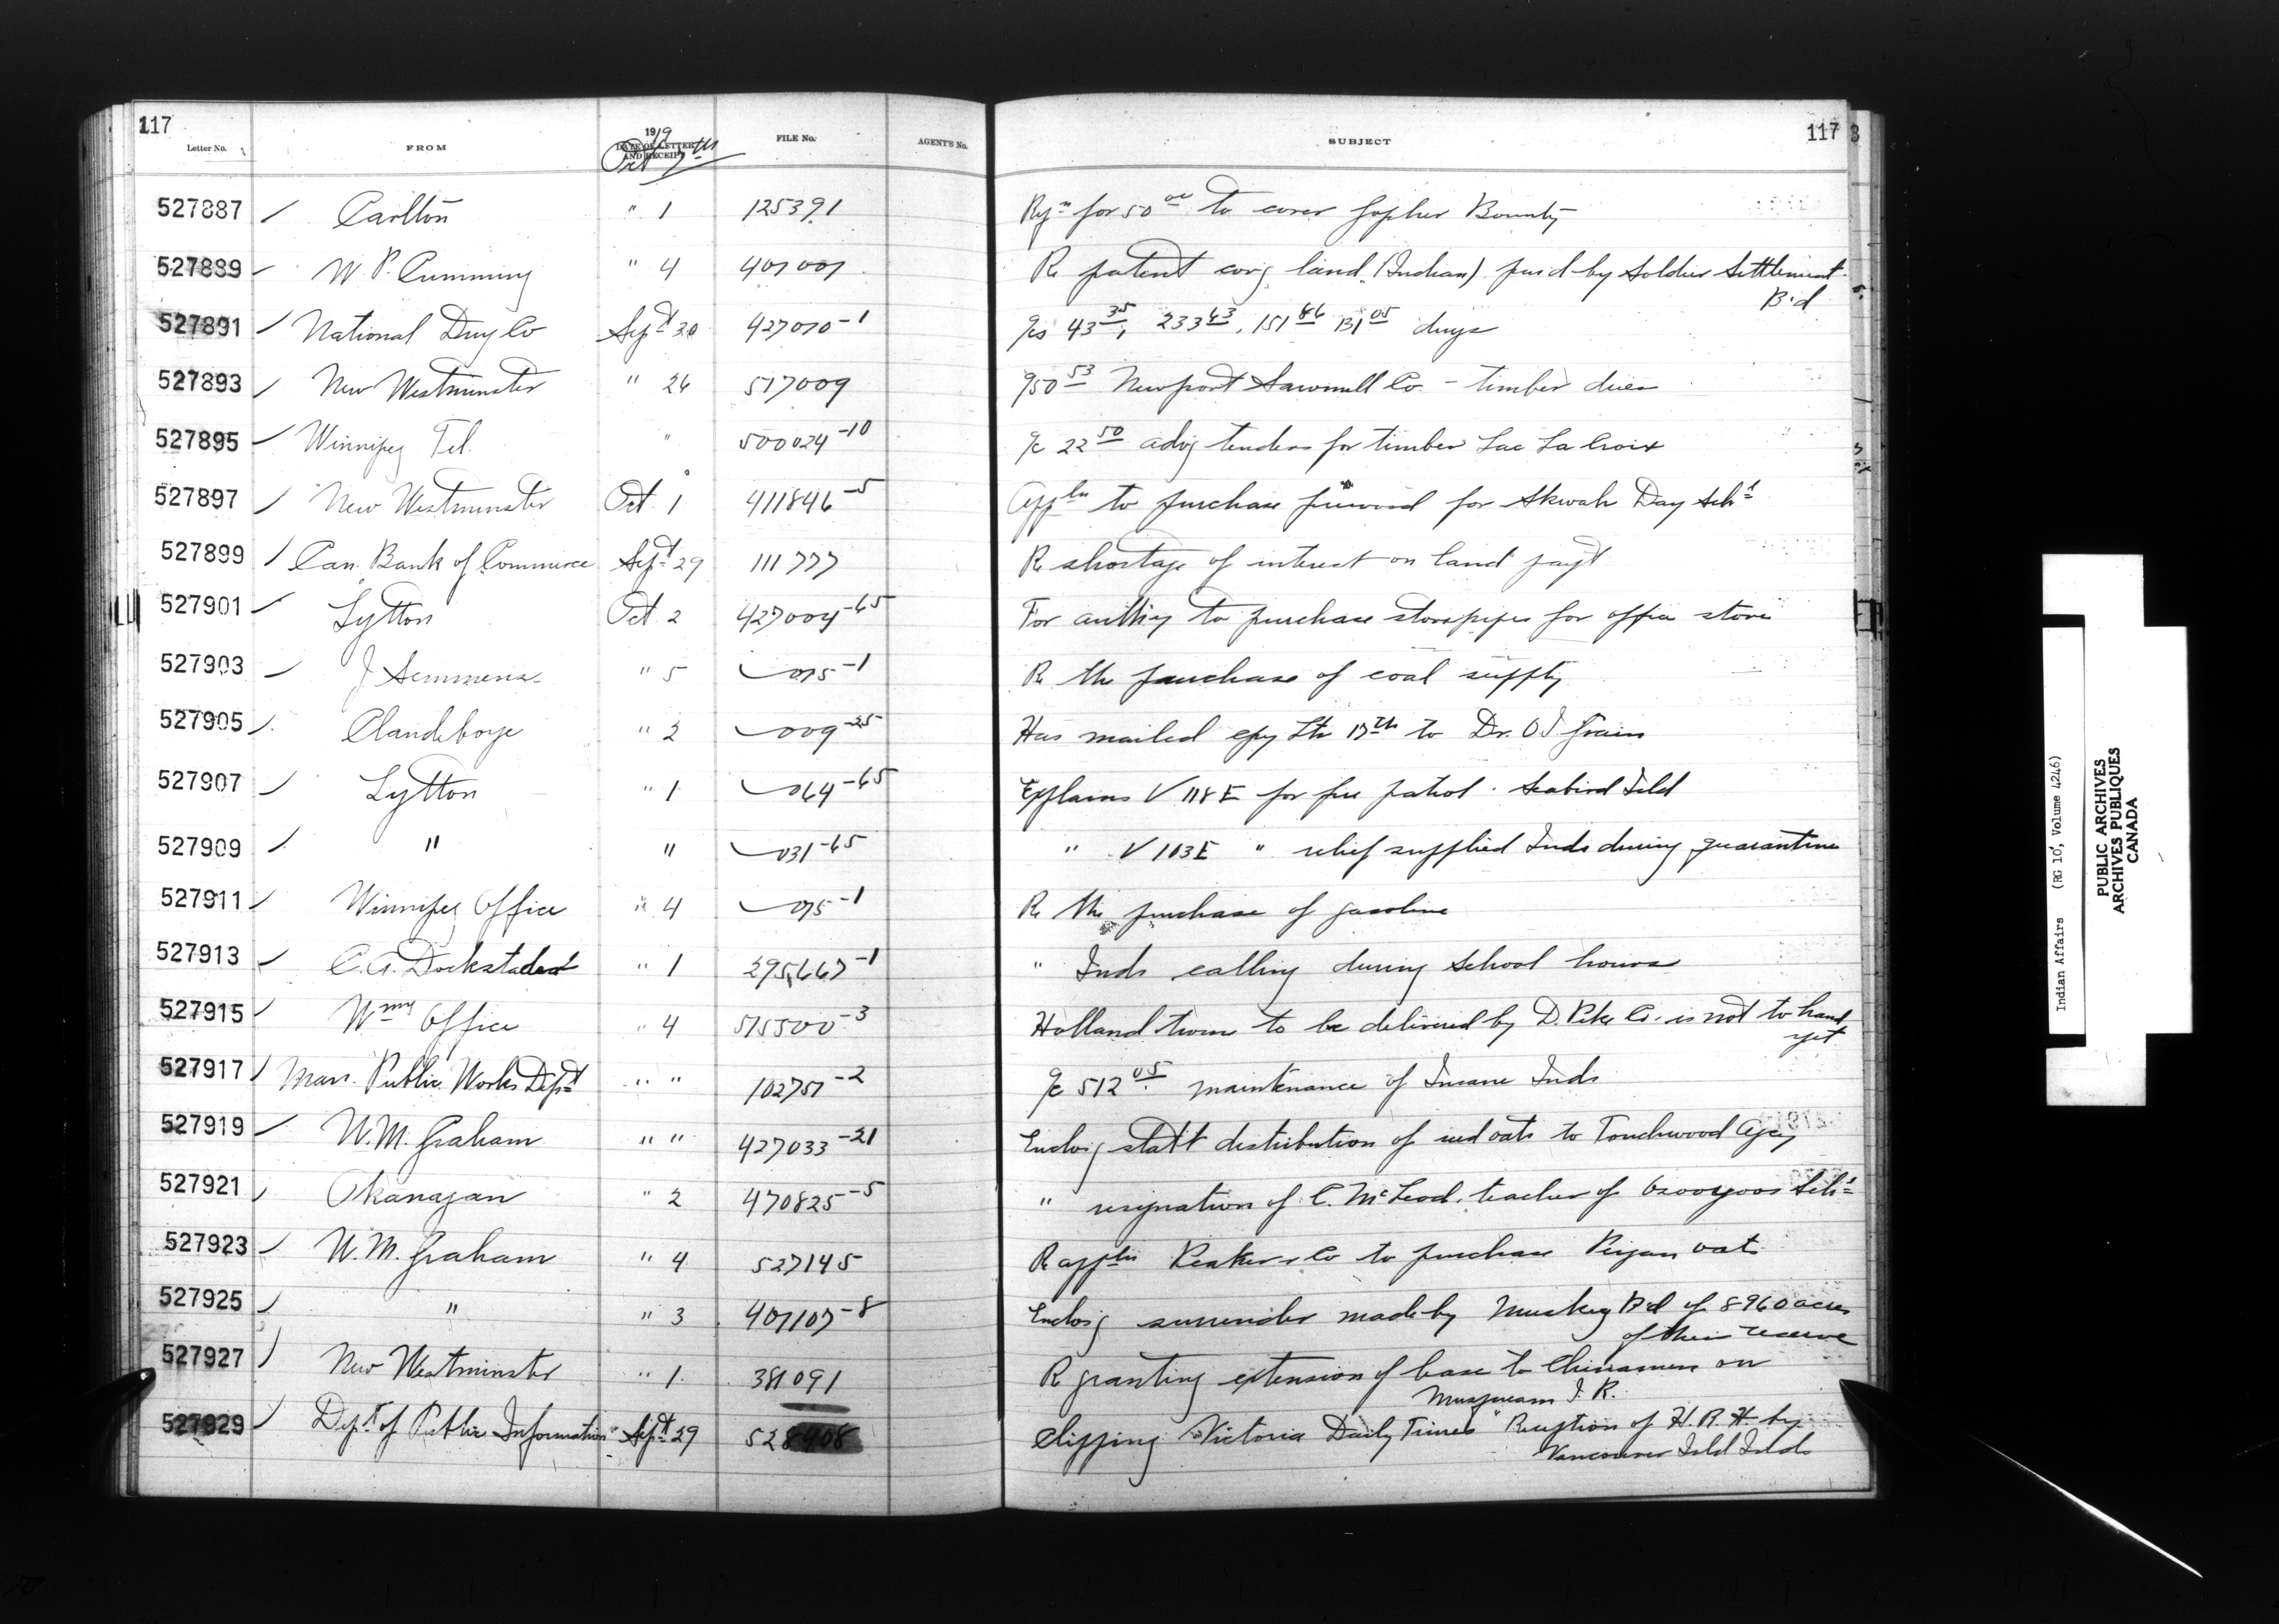 117
Letter No.
FROM
1919
DATE OF LETTER AND RECEIPT
Oct 7th
FILE No.
AGENT'S No.
SUBJECT
117
3
527887 Carlton " 1 125391 Rqn for 50 00 to cover gopher Bounty
527889 W. P. Cumming " 4 407007 Re patent covg land (Indian) purd by Soldier Settlement
B'd
527891 National Drug Co Sept 20 427010-1 a/cs 43 35, 233 63, 151 86 131 05 drugs
527893 New Westminster " 26 517009 950 53 Newport Sawmill Co. - timber dues
527895 Winnipeg Tel. " 500024-10 a/c 22 50 advg tenders for timber Lac La Croix
527897 New Westminster Oct. 1 411846-5 Appln to purchase firewood for Skwah Day Schl
527899 Can. Bank of Commerce Sept 29 111777 Re shortage of interest on land payt
527901 Lytton Oct. 2 427004-65 For authy to purchase stovepipes for office stove
527903 J. Semmens " 5 015-1 Re the purchase of coal supply
527905 Clandeboye " 2 009-25 Has mailed cpy Ltr 13th to Dr. O. I. Grain
527907 Lytton " 1 064-65 Explains V 118 E for fire patrol. Seabird Isld
527909 " " 031-65 " V 103 E " relief supplied Inds during quarantine
527911 Winnipeg Office " 4 015-1 Re the purchase of gasoline
527913 C. A. Dockstader " 1 295,667-1 " Inds calling during school hours
527915 Wmy Office " 4 515500-3 Holland twine to be delivered by D. Pike Co. is not to hand
yet
527917 Man. Public Works Dept " " 102751-2 a/c 512 05 maintenance of Insane Inds
527919 W. M. Graham " " 427033-21 Enclosg statt distribution of seed oats to Touchwood Agcy
527921 Okanagan " 2 470825-5 " resignation of C. McLeod, teacher of Osooyoos Schl
527923 W. M. Graham " 4 527145 Re appln Peaker & Co to purchase Peigan oats
527925 " " 3 407107-8 Enclosg surrender made by Muskeg B'd of 8960 acres
of their reserve
527927 New Westminster " 1 381091 Re granting extension of lease to Chinamen on
Musqueam I. R.
527929 Dept of Public Information Sept 29 528408 Clipping "Victoria Daily Times" Reception of H. R. H. by
Vancouver Isld Inds
Indian Affairs (RG 10, Volume 4246)
PUBLIC ARCHIVES
ARCHIVES PUBLIQUES
CANADA